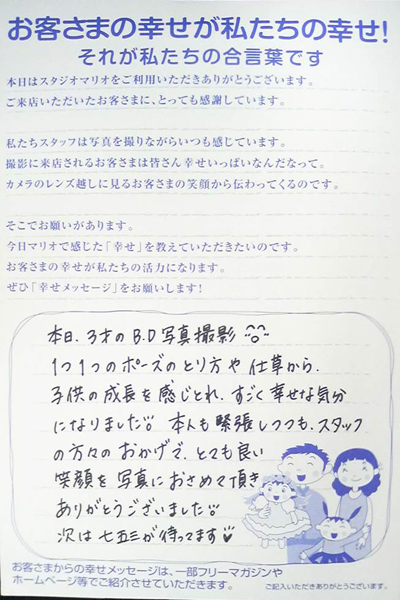 お客さまの幸せが私たちの幸せ!
それが私たちの合言葉です
本日はスタジオマリオをご利用いただきありがとうございます。
ご来店いただいたお客さまに、とっても感謝しています。
私たちスタッフは写真を撮りながらいつも感じています。
撮影に来店されるお客さまは皆さん幸せいっぱいなんだなって。
カメラのレンズ越しに見るお客さまの笑顔から伝わってくるのです。
そこでお願いがあります。
今日マリオで感じた「幸せ」を教えていただきたいのです。
お客さまの幸せが私たちの活力になります。
ぜひ「幸せメッセージ」をお願いします!
本日、3才のB.D写真撮影
1つ1つのポーズのとり方や仕草から、
子供の成長を感じとれ、すごく幸せな気分
になりました。本人も緊張しつつも、スタッフ
の方々のおかげで、とても良い
笑顔を写真におさめて頂き
ありがとうございました。
次は七五三が待ってます♥
お客さまからの幸せメッセージは、一部フリーマガジンや
ホームページ等でご紹介させていただきます。
ご記入いただきありがとうございます。